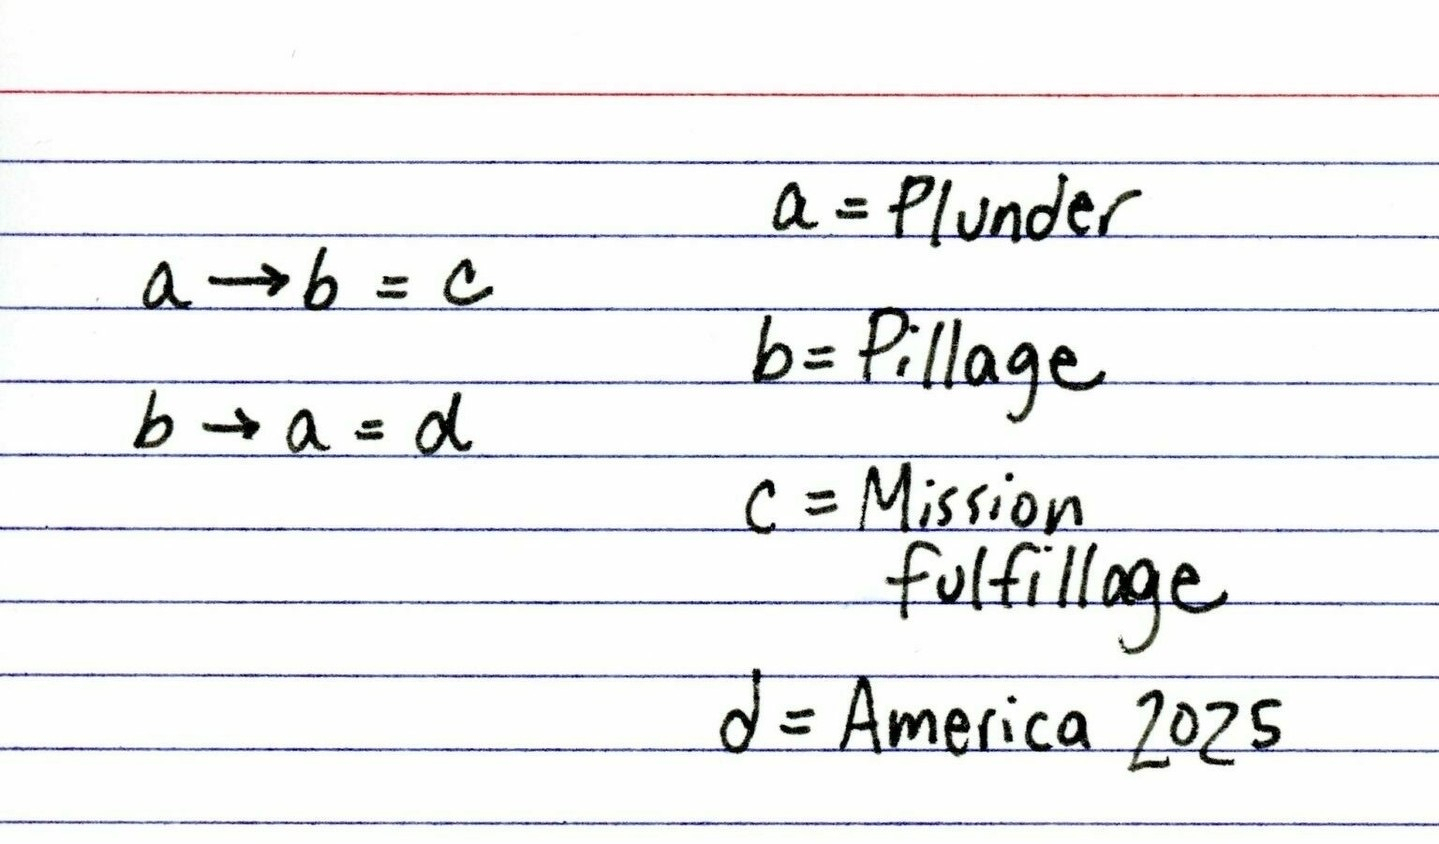 a → b = c
b → a = d
a = Plunder
b = Pillage
c = Mission
fulfillage
d = America 2025